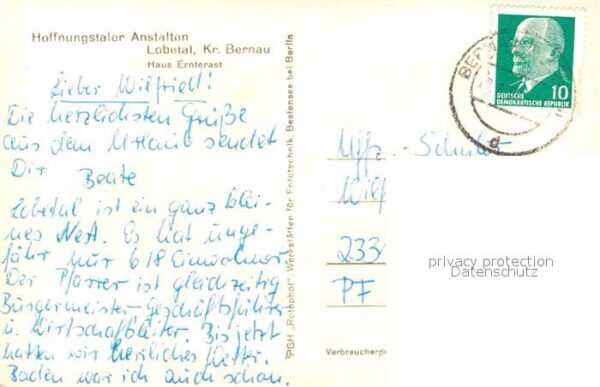 Hoffnungstaler Anstalten
Lobetal, Kr. Bernau
Haus Ernterast
Lieber Wilfried!
Die herzlichsten Grüße
aus dem Urlaub sendet
Dir
Beate
Lobetal ist ein ganz klei-
nes Nest. Es hat unge-
fähr nur 618 Einwohner.
Der Pfarrer ist gleichzeitig
Bürgermeister, Geschäftsführer
u. Wirtschaftsleiter. Bis jetzt
hatten wir herrliches Wetter.
Baden war ich auch schon.
PGH „Rotophot" Werkstätten für Fototechnik, Bestensee bei Berlin
10
DEUTSCHE
DEMOKRATISCHE REPUBLIK
BER
d
Uffz.-Schüler
Wilf
233
PF
privacy protection
Datenschutz
Verbraucherp